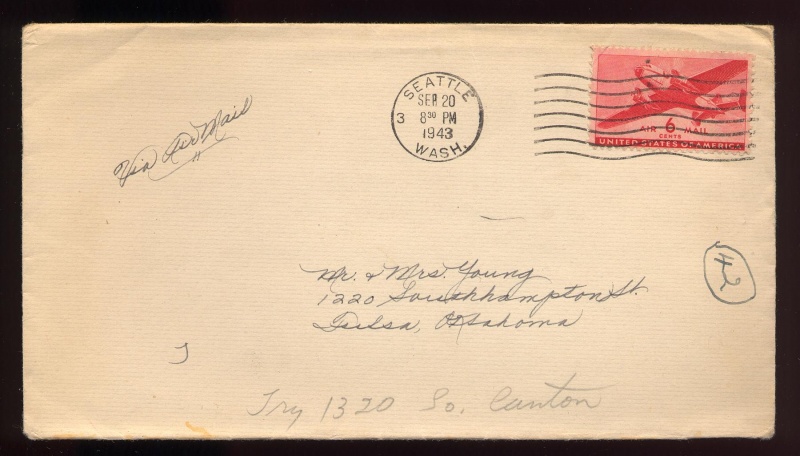 SEATTLE
SEP 20
3 8 30 PM
1943
WASH.
AIR 6 MAIL
CENTS
UNITED STATES OF AMERICA
Via Air Mail
Mr. & Mrs. Young
1220 Southhampton St.
Tulsa, Oklahoma
42
Try 1320 So. Canton